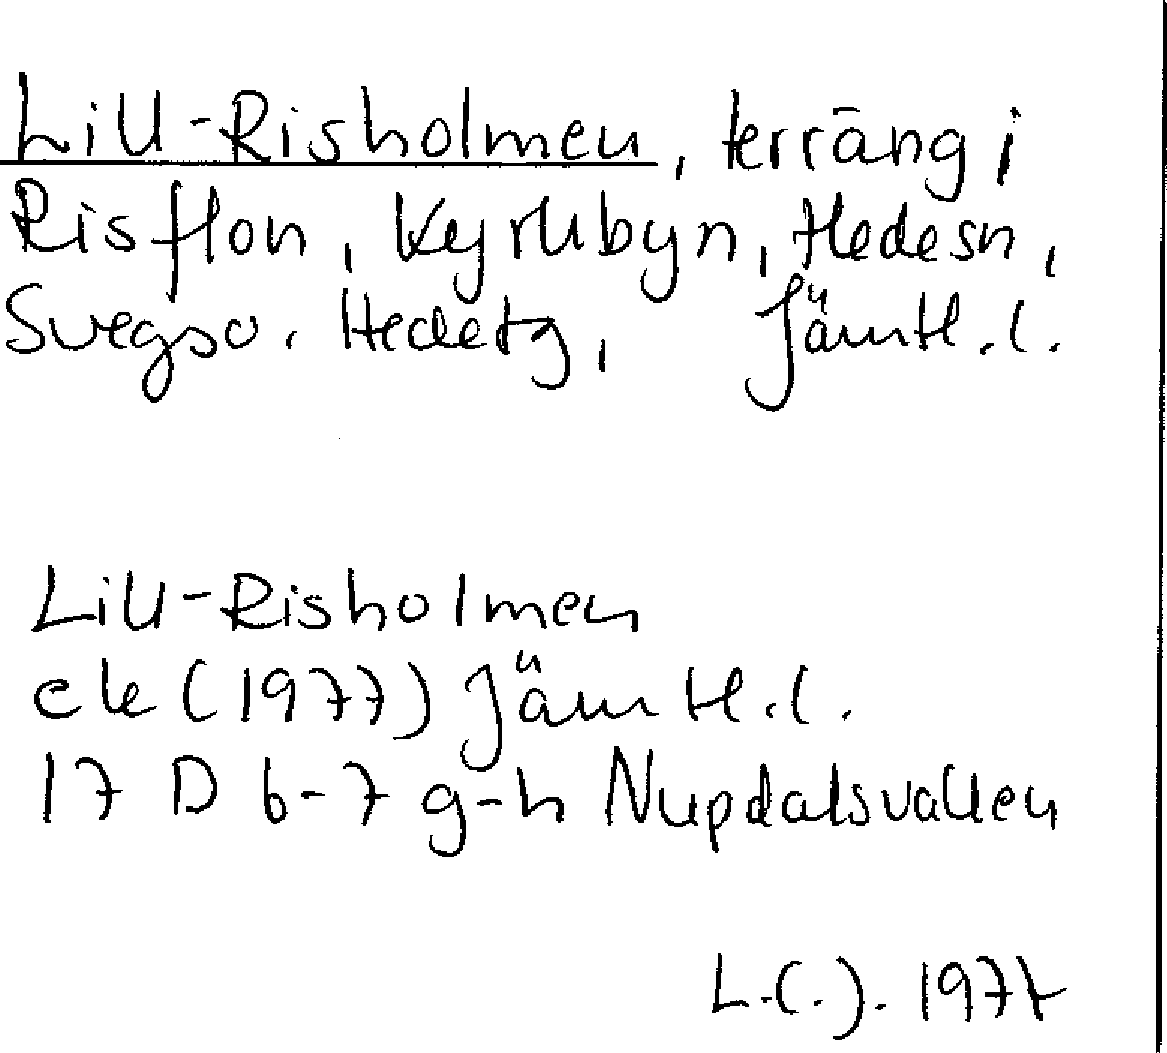 Lill-Risholmen, terräng i
Risflon, Kyrkbyn, Hedesn,
Svegso. Hedetg, Jämtl.l.
Lill-Risholmen
ek (1977) Jämtl.l.
17 D 6-7 g-h Nupdalsvallen
L.(.). 1977